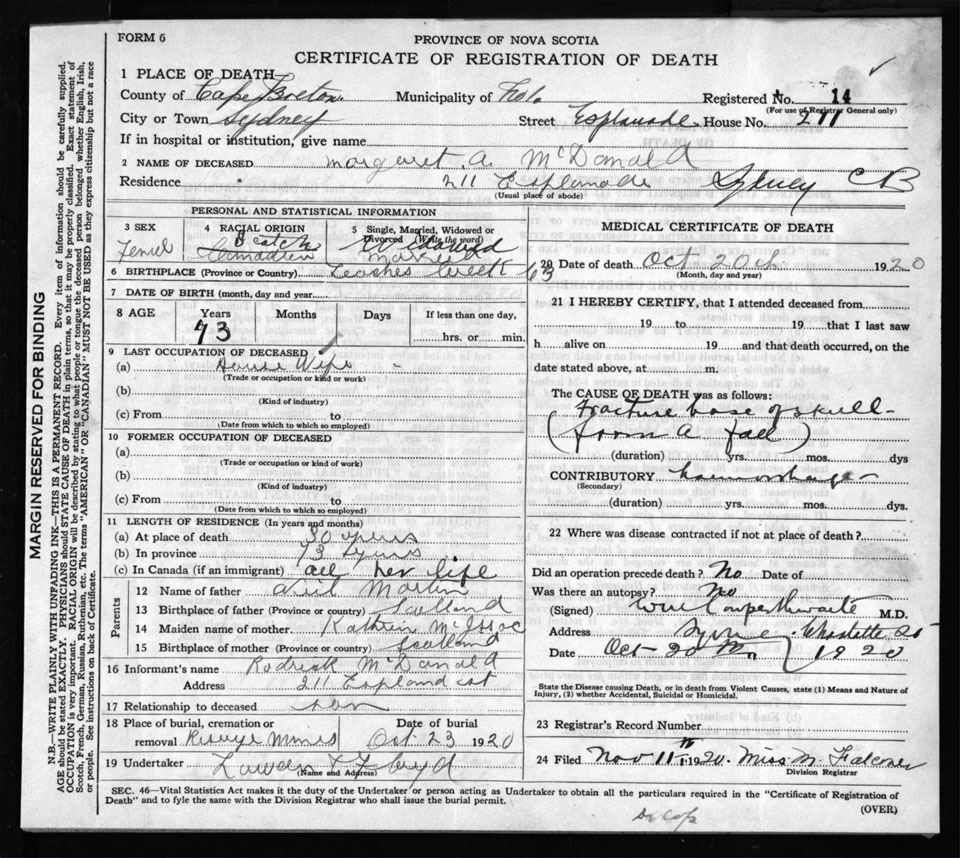 FORM 6
PROVINCE OF NOVA SCOTIA
CERTIFICATE OF REGISTRATION OF DEATH
1 PLACE OF DEATH
County of Cape Breton Municipality of Registered No. 14
(For use of Registrar General only)
City or Town Sydney Street Esplanade House No. 211
If in hospital or institution, give name
2 NAME OF DECEASED Margaret A. McDonald
Residence 211 Esplanade Sydney CB
(Usual place of abode)
PERSONAL AND STATISTICAL INFORMATION
3 SEX
4 RACIAL ORIGIN
Scotch
Canadian
5 Single, Married, Widowed or Divorced (Write the word)
Widowed
Married
6 BIRTHPLACE (Province or Country) Leaches Creek CB
7 DATE OF BIRTH (month, day and year)
8 AGE Years Months Days If less than one day,
73 hrs. or min.
9 LAST OCCUPATION OF DECEASED
(a) House Wife
(Trade or occupation or kind or work)
(b)
(Kind of industry)
(c) From to
(Date from which to which so employed)
10 FORMER OCCUPATION OF DECEASED
(a)
(Trade or occupation or kind of work)
(b)
(Kind of industry)
(c) From to
(Date from which to which so employed)
11 LENGTH OF RESIDENCE (In years and months)
(a) At place of death 30 years
(b) In province 73 years
(c) In Canada (if an immigrant) all her life
Parents
12 Name of father Martin
13 Birthplace of father (Province or country) Scotland
14 Maiden name of mother Kathrin McIssac
15 Birthplace of mother (Province or country) Scotland
16 Informant's name Rodrick McDonald
Address 211 Esplanade st
17 Relationship to deceased son
18 Place of burial, cremation or removal Date of burial
Mines Oct 23 1920
19 Undertaker
(Name and Address)
MEDICAL CERTIFICATE OF DEATH
20 Date of death Oct 20th 1920
(Month, day and year)
21 I HEREBY CERTIFY, that I attended deceased from
19 to 19 that I last saw
h alive on 19 and that death occurred, on the
date stated above, at m.
The CAUSE OF DEATH was as follows:
Fracture base of skull
(from a fall)
(duration) yrs. mos. dys
CONTRIBUTORY
(Secondary)
(duration) yrs. mos. dys.
22 Where was disease contracted if not at place of death?
Did an operation precede death? No Date of
Was there an autopsy? No
(Signed) M.D.
Address Charlotte St
Date Oct 20 1920
State the Disease causing Death, or in death from Violent Causes, state (1) Means and Nature of
Injury, (2) whether Accidental, Suicidal or Homicidal.
23 Registrar's Record Number
24 Filed Nov 11th 1920. Miss M. Falconer
Division Registrar
SEC. 46—Vital Statistics Act makes it the duty of the Undertaker or person acting as Undertaker to obtain all the particulars required in the "Certificate of Registration of
Death" and to fyle the same with the Division Registrar who shall issue the burial permit.
(OVER)
MARGIN RESERVED FOR BINDING
N.B.—WRITE PLAINLY WITH UNFADING INK—THIS IS A PERMANENT RECORD. Every item of information should be carefully supplied.
AGE should be stated EXACTLY. PHYSICIANS should STATE CAUSE OF DEATH in plain terms, so that it may be properly classified. Exact statement of
OCCUPATION is very important. RACIAL ORIGIN will be described by stating to what people or tongue the deceased person belonged whether English, Irish,
Scotch, French, German, Russian, Ruthenian, etc. The terms "AMERICAN" OR "CANADIAN" MUST NOT BE USED as they express citizenship but not a race
or people. See instructions on back of Certificate.